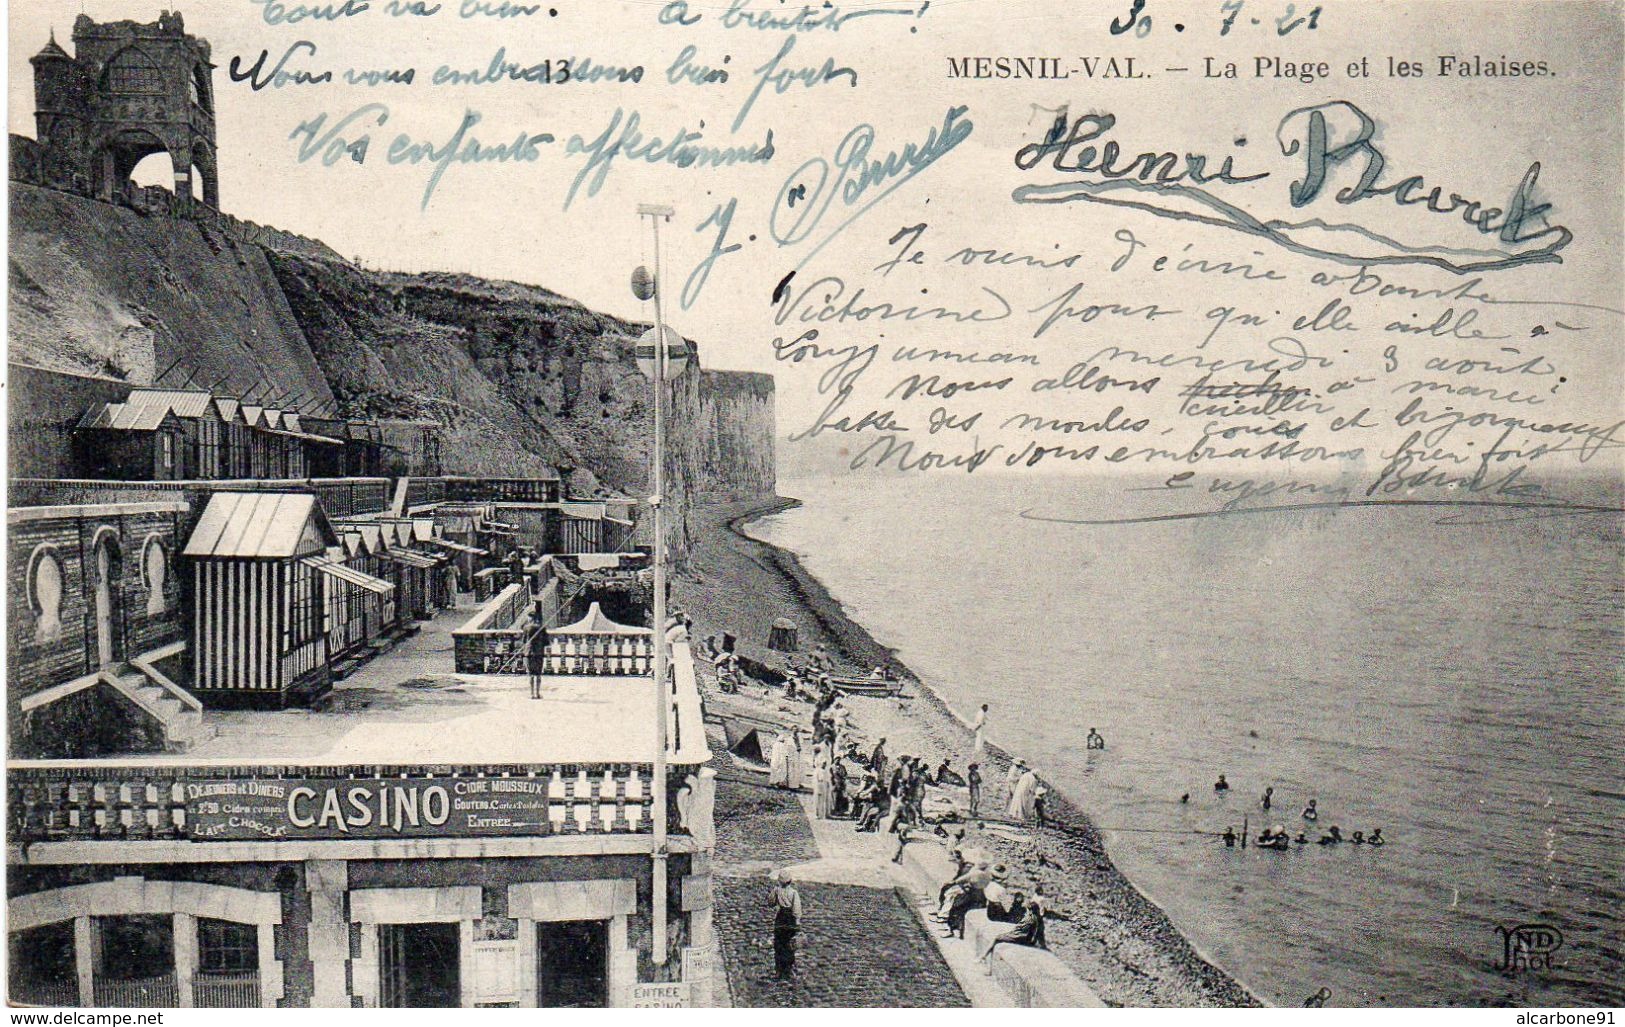 Tout va bien. à bientôt !
30 . 7 - 21
Nous vous embrassons bien fort
13
MESNIL-VAL. — La Plage et les Falaises.
Vos enfants affectionnés
Y.
Henri Buret
Je viens d'écrire à Tante
Victorine pour qu'elle aille à
Longjumeau mercredi 3 août.
Nous allons à marée
cueillir
basse des moules, et
Nous vous embrassons bien fort
Buret
DÉJEUNERS et DINERS
2f50 Cidre compris
LAIT. CHOCOLAT
CASINO
CIDRE MOUSSEUX
GOUTERS. Cartes Postales
ENTRÉE
ENTRÉE
CASINO
ND
Phot.
www.delcampe.net
alcarbone91